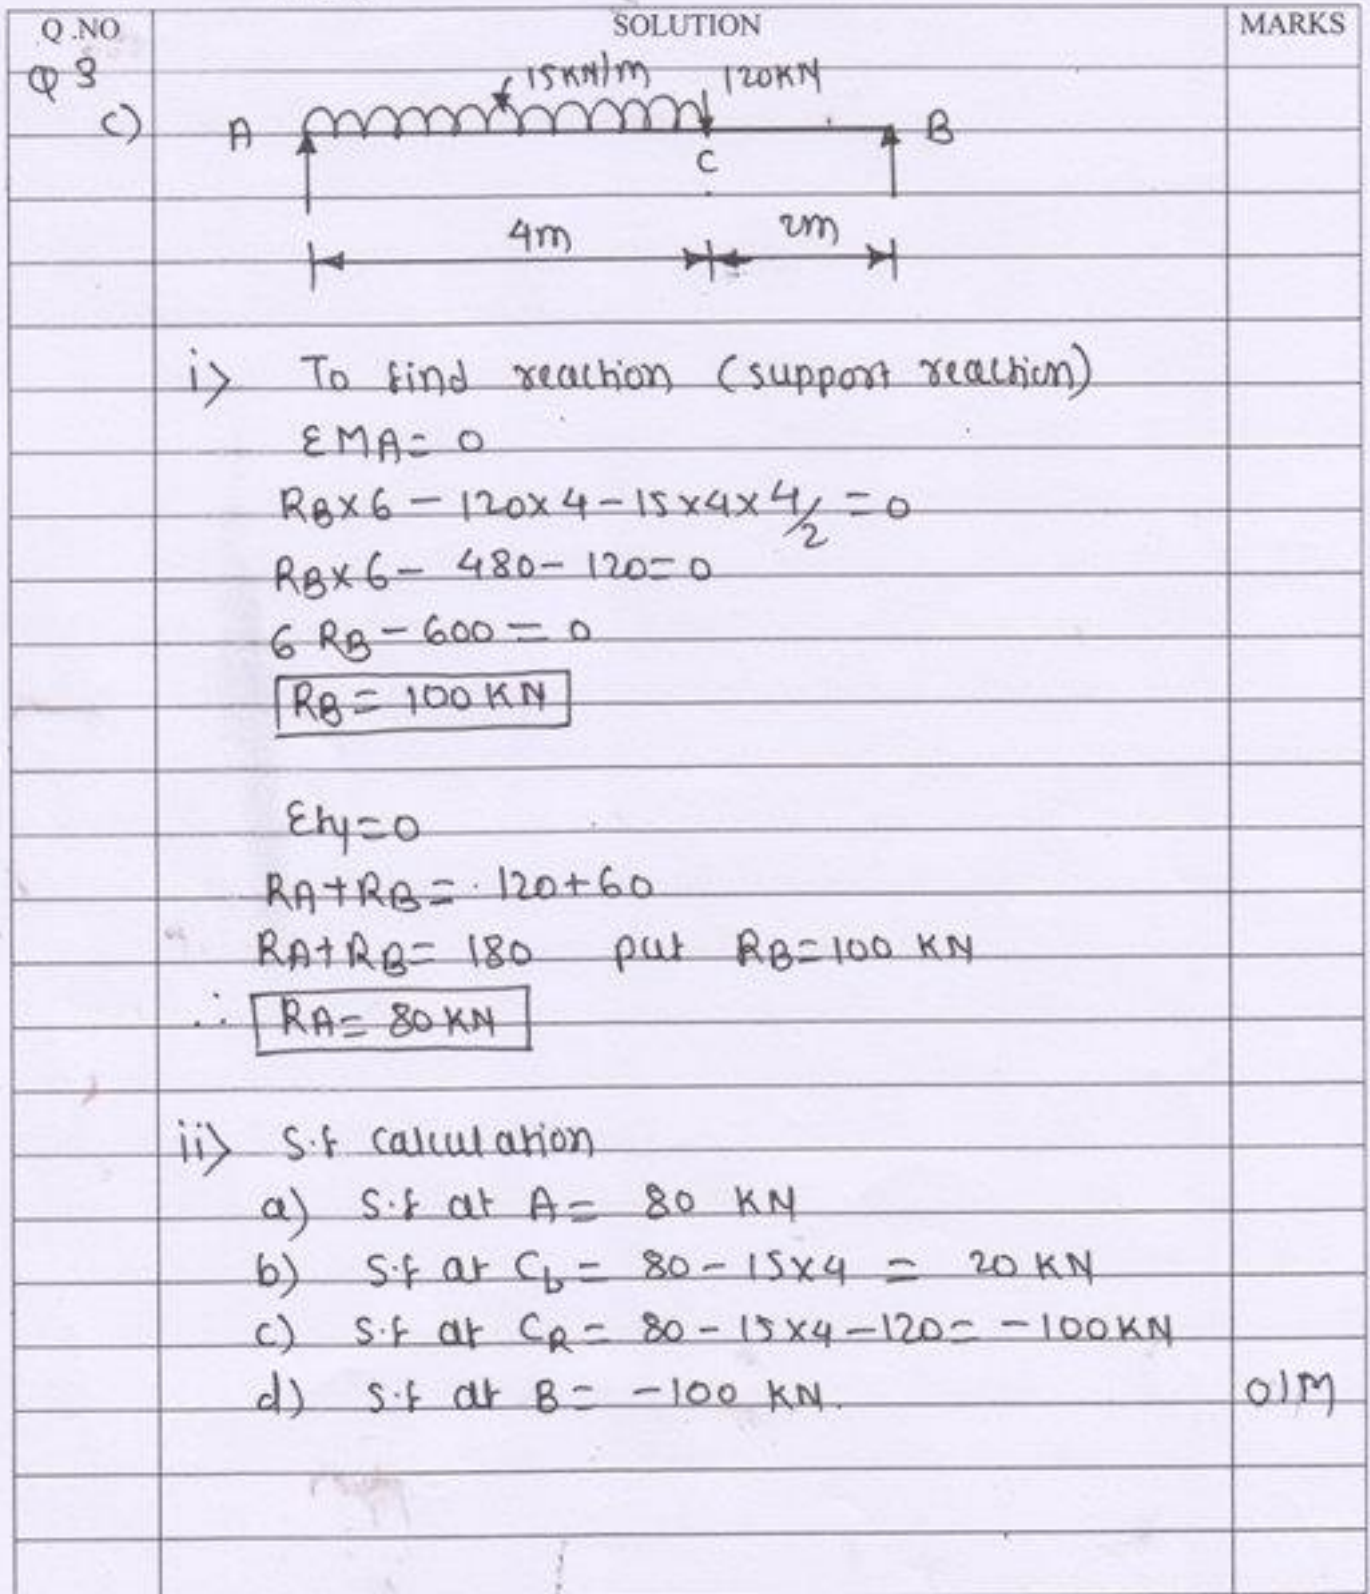 Q.NO SOLUTION MARKS
Q 3
c)
15KN/m 120KN
A B
C
4m 2m
i> To find reaction (support reaction)
ΣMA= 0
RB×6 - 120×4 - 15×4×4/2 = 0
RB×6 - 480 - 120 = 0
6 RB - 600 = 0
RB = 100 KN
Σfy=0
RA+RB = 120+60
RA+RB = 180 put RB=100 KN
∴ RA= 80 KN
ii> S.f calculation
a) S.f at A = 80 KN
b) S.f at CL = 80 - 15×4 = 20 KN
c) S.f at CR = 80 - 15×4 - 120 = -100 KN
d) S.f at B = -100 KN. 01M